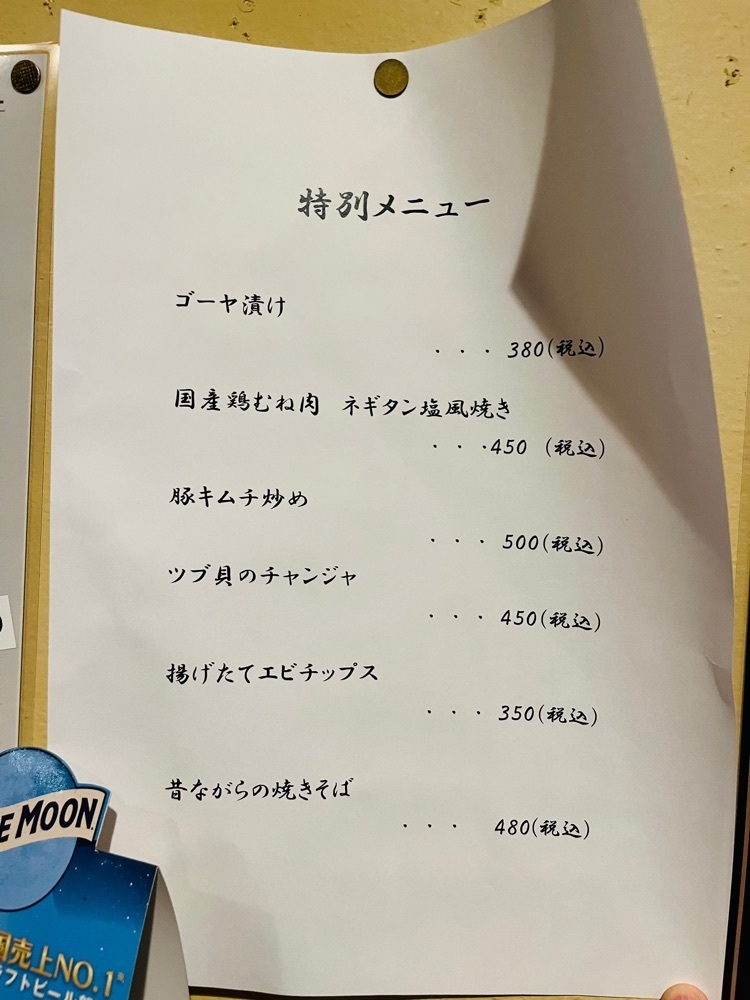 特別メニュー
ゴーヤ漬け
・・・380(税込)
国産鶏むね肉　ネギタン塩風焼き
・・・450 (税込)
豚キムチ炒め
・・・500(税込)
ツブ貝のチャンジャ
・・・450(税込)
揚げたてエビチップス
・・・350(税込)
昔ながらの焼きそば
・・・ 480(税込)
E MOON
売上NO.1
フトビール